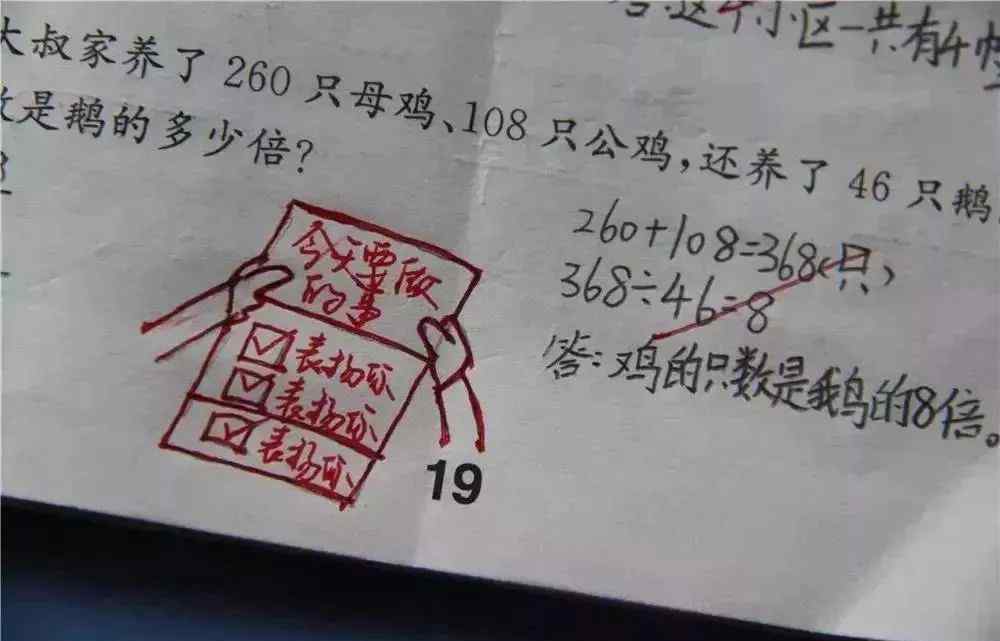 答:这个小区一共有4幢
大叔家养了 260 只母鸡、108 只公鸡，还养了 46 只鹅
数是鹅的多少倍？
260+108=368(只)
368÷46=8
答:鸡的只数是鹅的8倍。
今天要做
的事
表扬你
表扬你
表扬你
19